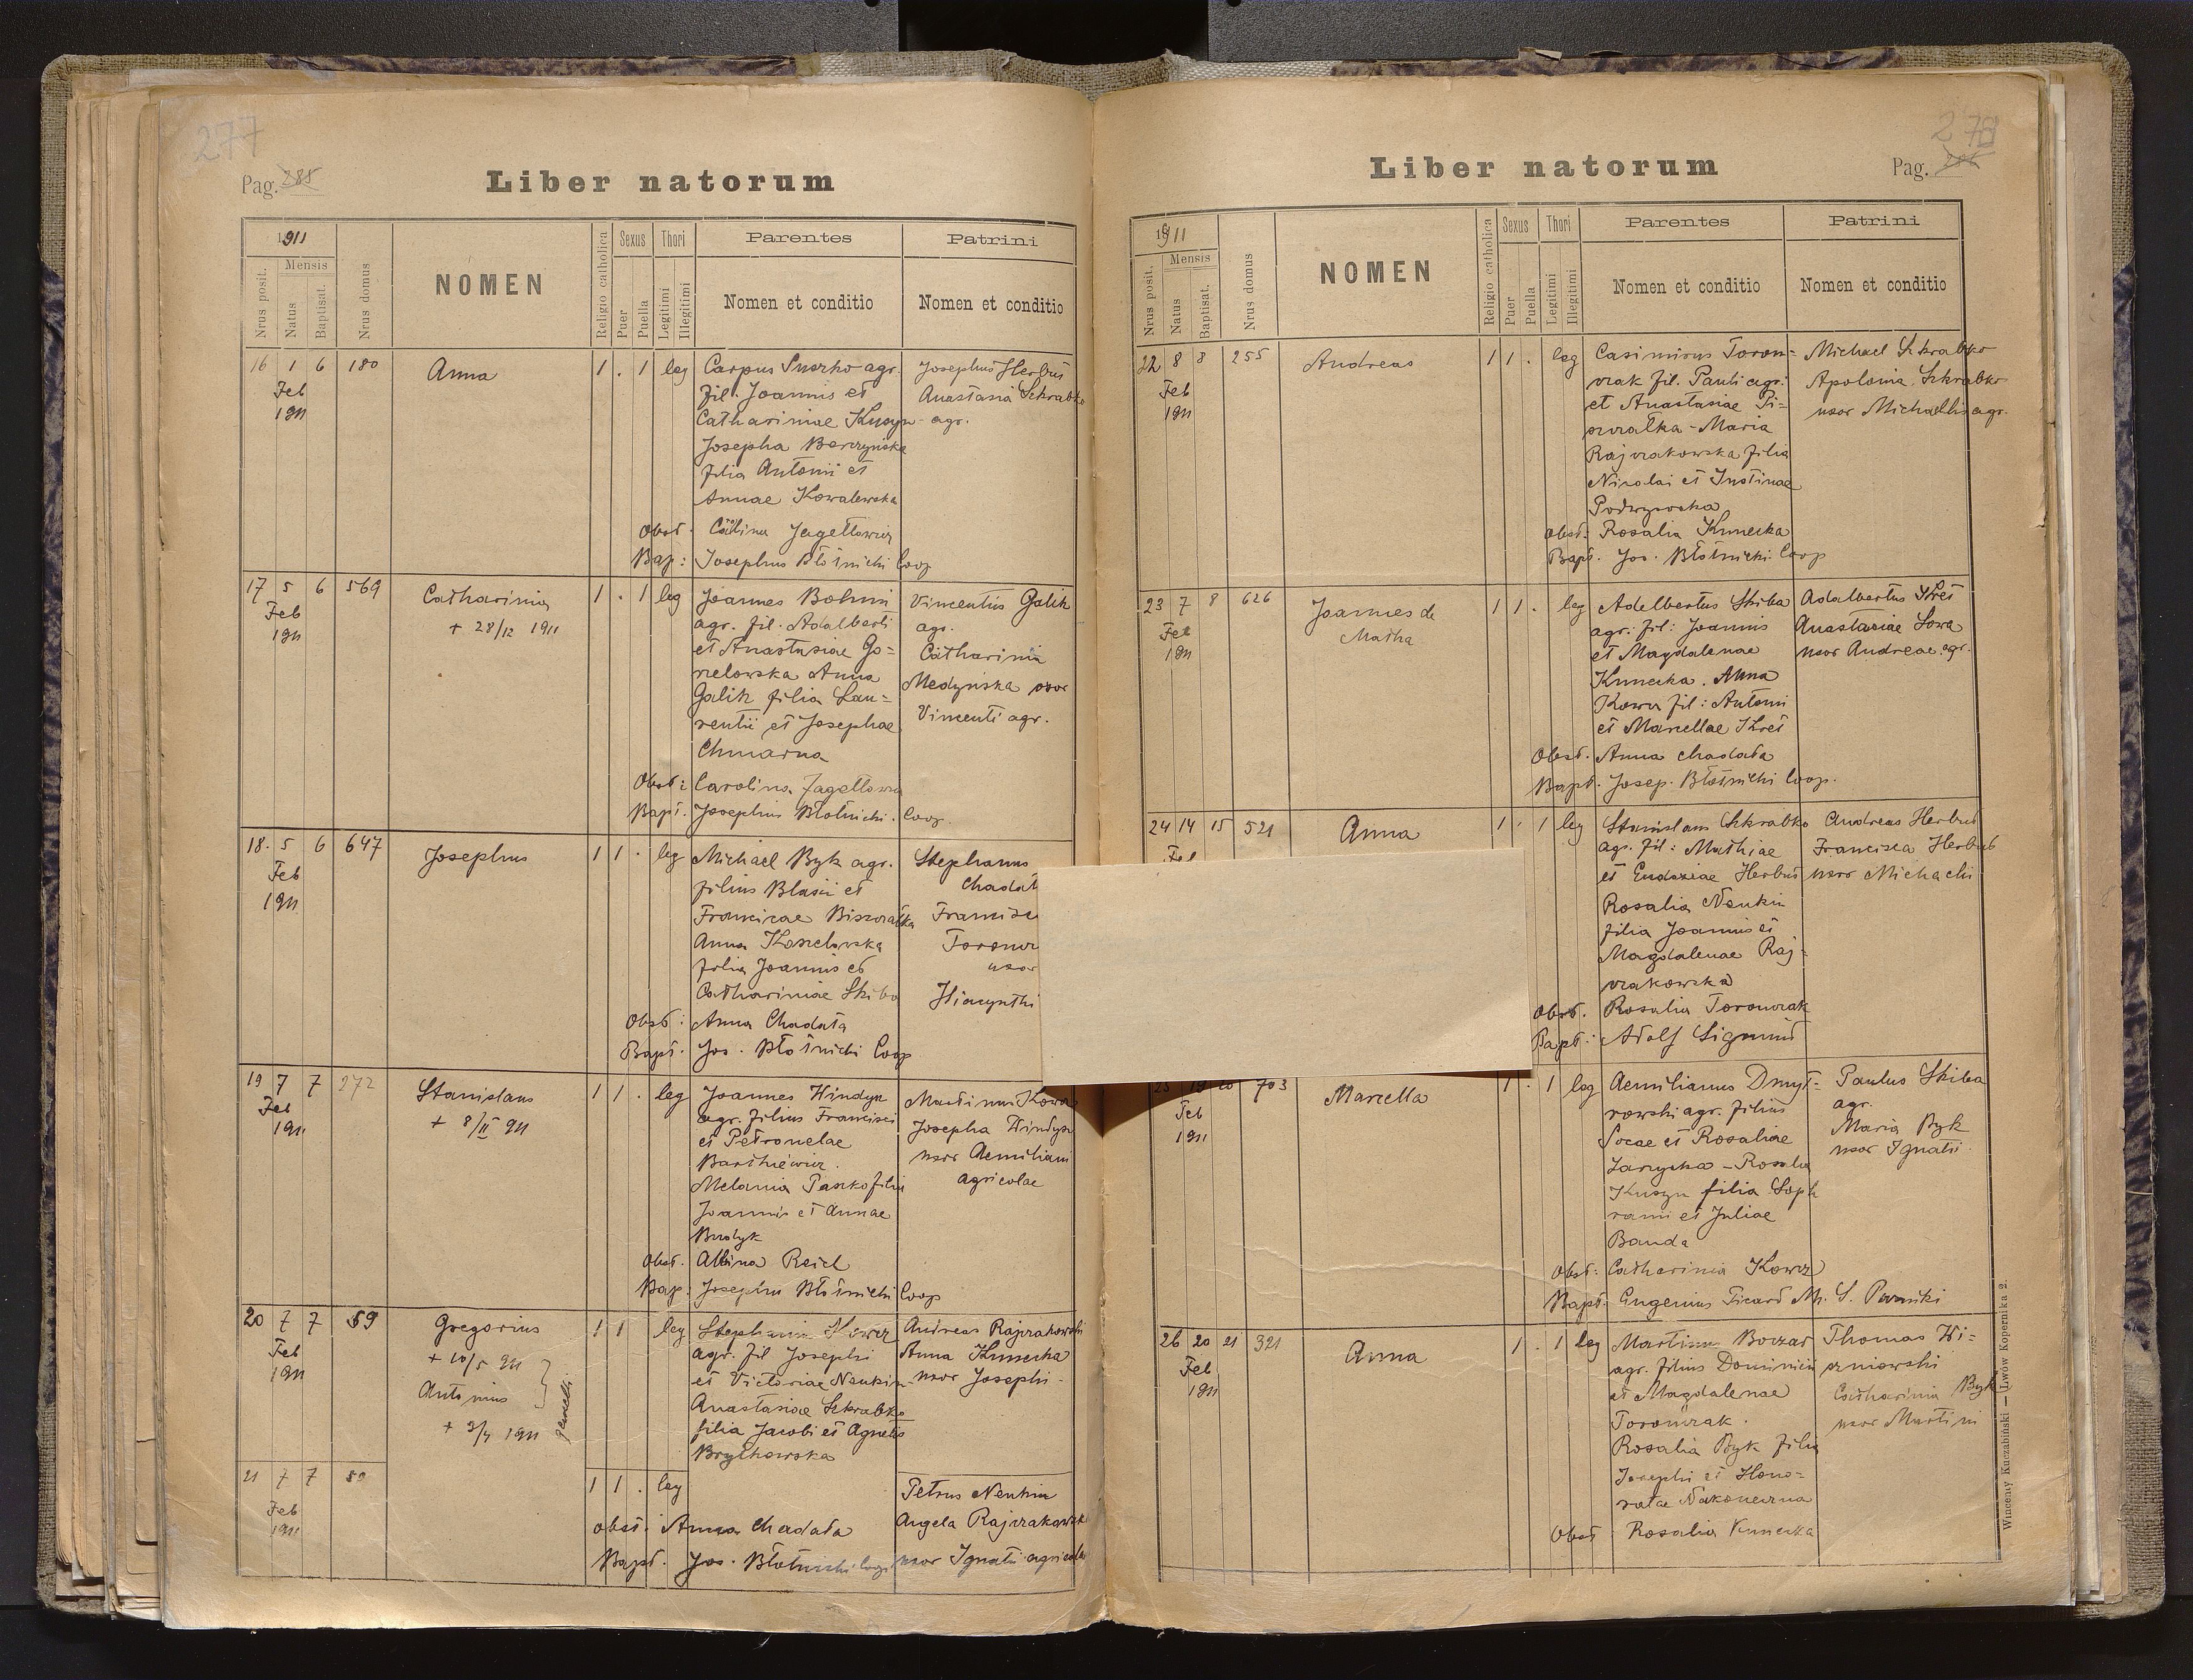 277
Pag. 285
Liber natorum
1911
Nrus posit.
Mensis
Natus
Baptisat.
Nrus domus
NOMEN
Religio catholica
Sexus
Puer
Puella
Thori
Legitimi
Illegitimi
Parentes
Nomen et conditio
Patrini
Nomen et conditio
16 1 6 180 Anna 1 . 1 leg
Feb
1911
Carpus agr.
fil. Joannis et
Catharinae
Josepha
filia Antonii et
Annae Kowalewska
Josephus Herbut
Anastasia Schrabko
agr.
Obst:
Bap: Josephus Błotnicki Coop
17 5 6 569 Catharina 1 . 1 leg
Feb
1911
+ 28/12 1911
Joannes
agr. fil. Adalberti
et Anastasiae Go=
relowska Anna
Galik filia Lau=
rentii et Josephae
Chmarna
Vincentius Galik
agr.
Catharina
Medyńska uxor
Vincenti agr.
Obst: Carolina
Bapt. Josephus Błotnicki. Coop.
18. 5 6 647 Josephus 1 1 . leg
Feb
1911
Michael Byk agr.
filius Blasii et
Franciscae
Anna
filia Joannis et
Catharinae Skiba
Stephanus
Chadat
Francisc
Toronc
uxor
Hiacynthi
Obst: Anna Chadata
Bapt. Jos. Błotnicki Coop
19 7 7 272 Stanislaus 1 1 . leg
Feb
1911
+ 8/II 911
Joannes Hindyn
agr. filius Francisci
et Petronelae
Melania Paszko filia
Joannis et Annae
Martinus Kowa
Josepha
uxor Aemiliani
agricolae
Obst. Albina Reich
Bap: Josephus Błotnicki Coop
20 7 7 59 Gregorius 1 1 leg
Feb
1911
+ 10/5 911
Antonius
+ 3/4 1911
gemelli
agr. fil Josephi
et Victoriae Neukin
Anastasiae Schrabko
filia Jacobi et Agnetis
Andreas Rajzakowski
Anna Kunecka
uxor Josephi
21 7 7 59 1 1 . leg
Feb
1911
Petrus Neukin
Angela
uxor Ignatii agricolae
obst. Anna Chadata
Bapt. Jos. Błotnicki Coop
278
Pag. 286
Liber natorum
1911
Nrus posit.
Mensis
Natus
Baptisat.
Nrus domus
NOMEN
Religio catholica
Sexus
Puer
Puella
Thori
Legitimi
Illegitimi
Parentes
Nomen et conditio
Patrini
Nomen et conditio
22 8 8 255 Andreas 1 1 . leg
Feb
1911
Casimirus Toron=
czak fil. Pauli agr.
et Anastasiae Pi=
Maria
Rajzakowska filia
Nicolai et Justinae
Podwysocka
Michael Schrabko
Apolonia Schrabko
uxor Michaelis agr.
Obst: Rosalia Kunecka
Bapt. Jos. Błotnicki Coop
23 7 8 626 Joannes de 1 1 . leg
Feb
1911
Matha
Adelbertus Skiba
agr. fil: Joannis
et Magdalenae
Kunecka. Anna
Kowcz fil: Antonii
et Marcellae Kret
Adalbertus Kret
Anastasiae Sowa
uxor Andreae agr.
Obst. Anna Chadata
Bapt. Josep. Błotnicki Coop.
24 14 15 521 Anna 1 . 1 leg
Feb
Stanislaus Schrabko
agr. fil: Mathiae
et Eudoxiae Herbut
Rosalia Neukin
filia Joannis et
Magdalenae Raj=
zakowska
Andreas Herbut
Francisca Herbut
uxor Michaeli
Obst. Rosalia Toronczak
Bapt: Adolf Sigmund
25 19 20 703 Marcella 1 . 1 leg
Feb
1911
Aemilianus Dmyt=
rowski agr. filius
Lucae et Rosaliae
Zarycka - Rosalia
Kuszyn filia Soph
ranii et Juliae
Banda
Paulus Skiba
agr.
Maria Byk
uxor Ignatii
Obst: Catharinia Kowcz
Bapt. Eugenius
26 20 21 321 Anna 1 . 1 leg
Feb
1911
Martinus
agr. filius Dominici
et Magdalenae
Toronczak.
Rosalia Byk filia
Josephi et Hono=
ratae Nakoneczna
Thomas Wi=
szniowski
Catharinia Byk
uxor Martini
Obst Rosalia Kunecka
Wincenty Kuczabiński — Lwów Kopernika 2.